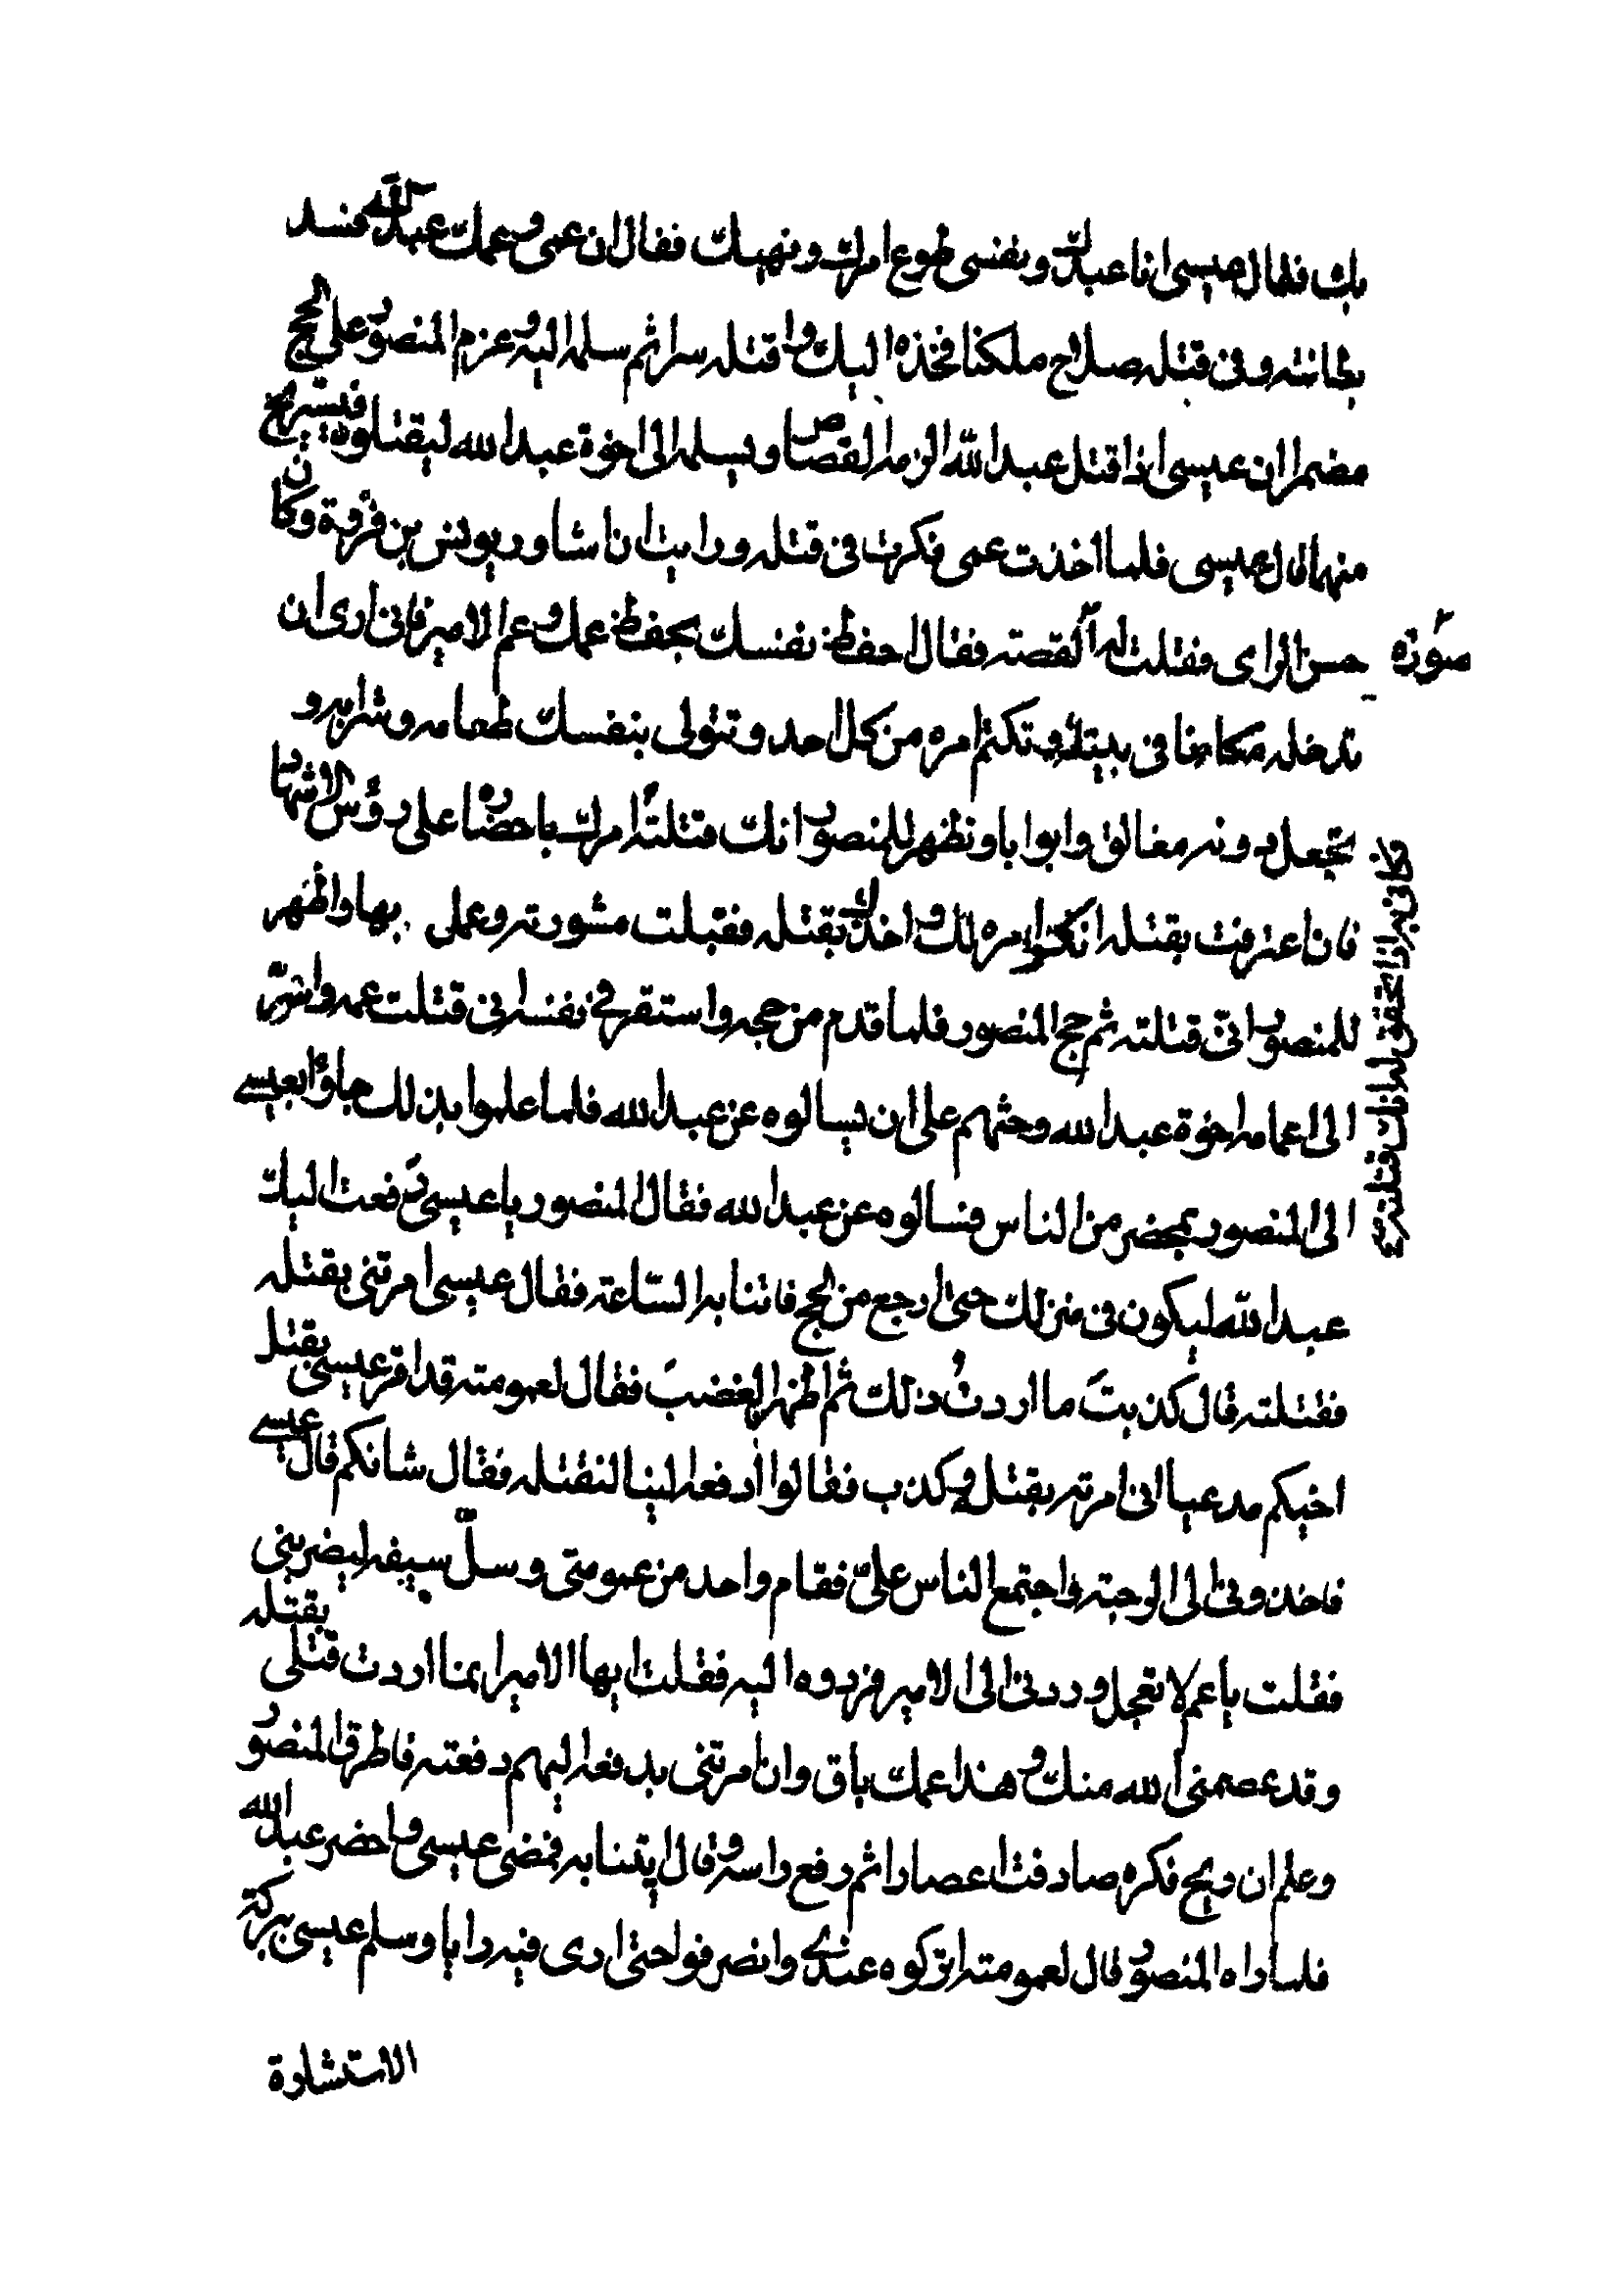 بك فقال عيسى انا عبدك ونفسى طوع امرك ونهيك فقال ان عمى وعمك عبد الله فسد
بطانته وفى قتله صلاح ملكنا فخذه اليك واقتله سرا ثم سلمه اليه وعزم المنصور على الحج
مضمرا ان عيسى اذا قتل عبد الله الزمه القصاص ويسلمه الى اخوة عبد الله ليقتلوه فيستريح
منهما قال عيسى فلما اخذت عمى فكرت فى قتله ورايت ان اشاور يونس بن فروة وكان
حسن الراى فقلت له القصته فقال احفظ نفسك بحفظ عمك وعم الامير فانى ارى ان
صورة
تدخله مكانا فى بيتك وتكتم امره من كل احد وتتولى بنفسك طعامه وشرابه و
تجعل دونه مغالق وابوابا وتظهر للمنصور انك قتلته امرك باحضاره على رؤس الاشهاد
فان اعترفت بقتله انكر امره لك واخذك بقتله فقبلت مشورته وعملى بها واظهر
فكانى به اذا تحقق له انك قتلته
للمنصور انى قتلته ثم حج المنصور فلما قدم من حجه واستقر فى نفسه انى قتلت عمه واشر
الى اعمامه اخوة عبد الله وحثهم على ان يسالوه عن عبد الله فلما علموا بذلك جاؤا بعيسى
الى المنصور بمحضر من الناس فسالوه عن عبد الله فقال المنصور يا عيسى دفعت اليك
عبد الله ليكون فى منزلك حتى ارجع من الحج فاتنا به الساعة فقال عيسى امرتنى بقتله
فقتلته قال كذبت ما اردت ذلك ثم اظهر الغضب فقال لعمومته قد اقر عيسى بقتل
اخيكم مدعيا انى امرته بقتله وكذب فقالوا ادفعه الينا لنقتله فقال شانكم قال عيسى
فاخذونى الى الرحبته واجتمع الناس على فقام واحد من عمومتى وسل سيفه ليضربنى
فقلت يا عم لا تعجل وردنى الى الامير فردوه اليه فقلت ايها الامير انما اردت قتلى بقتله
وقد عصمنى الله منك وهذا عمك باق وان امرتنى بدفعه اليهم دفعته فاطرق المنصور
وعلم ان ريح فكره صادفت اعصارا ثم رفع راسه وقال ايتنا به فمضى عيسى واحضر عبد الله
فلما راه المنصور قال لعمومته اتركوه عندى وانصرفوا حتى ارى فيه رايا وسلم عيسى ببركة
الاستشارة